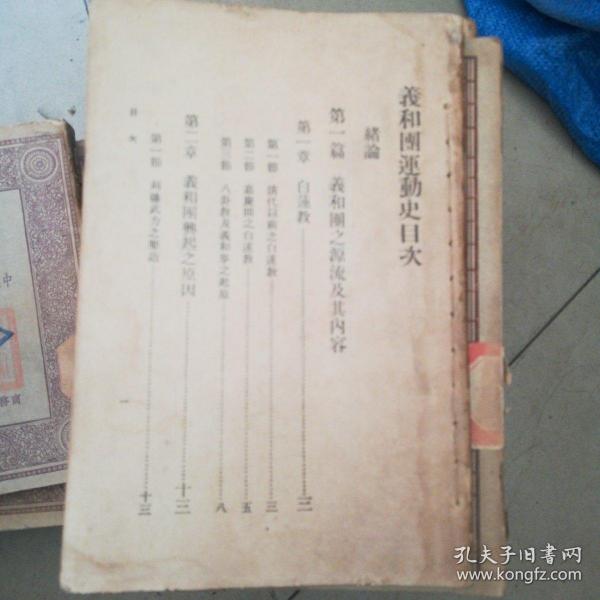 義和團運動史目次
緒論
第一篇 義和團之源流及其內容
第一章 白蓮教 三
第一節 清代以前之白蓮教 三
第二節 嘉慶間之白蓮教 五
第三節 八卦教及義和拳之起原 八
第二章 義和團興起之原因 十三
第一節 十三
目次
一
中
孔夫子旧书网
www.kongfz.com